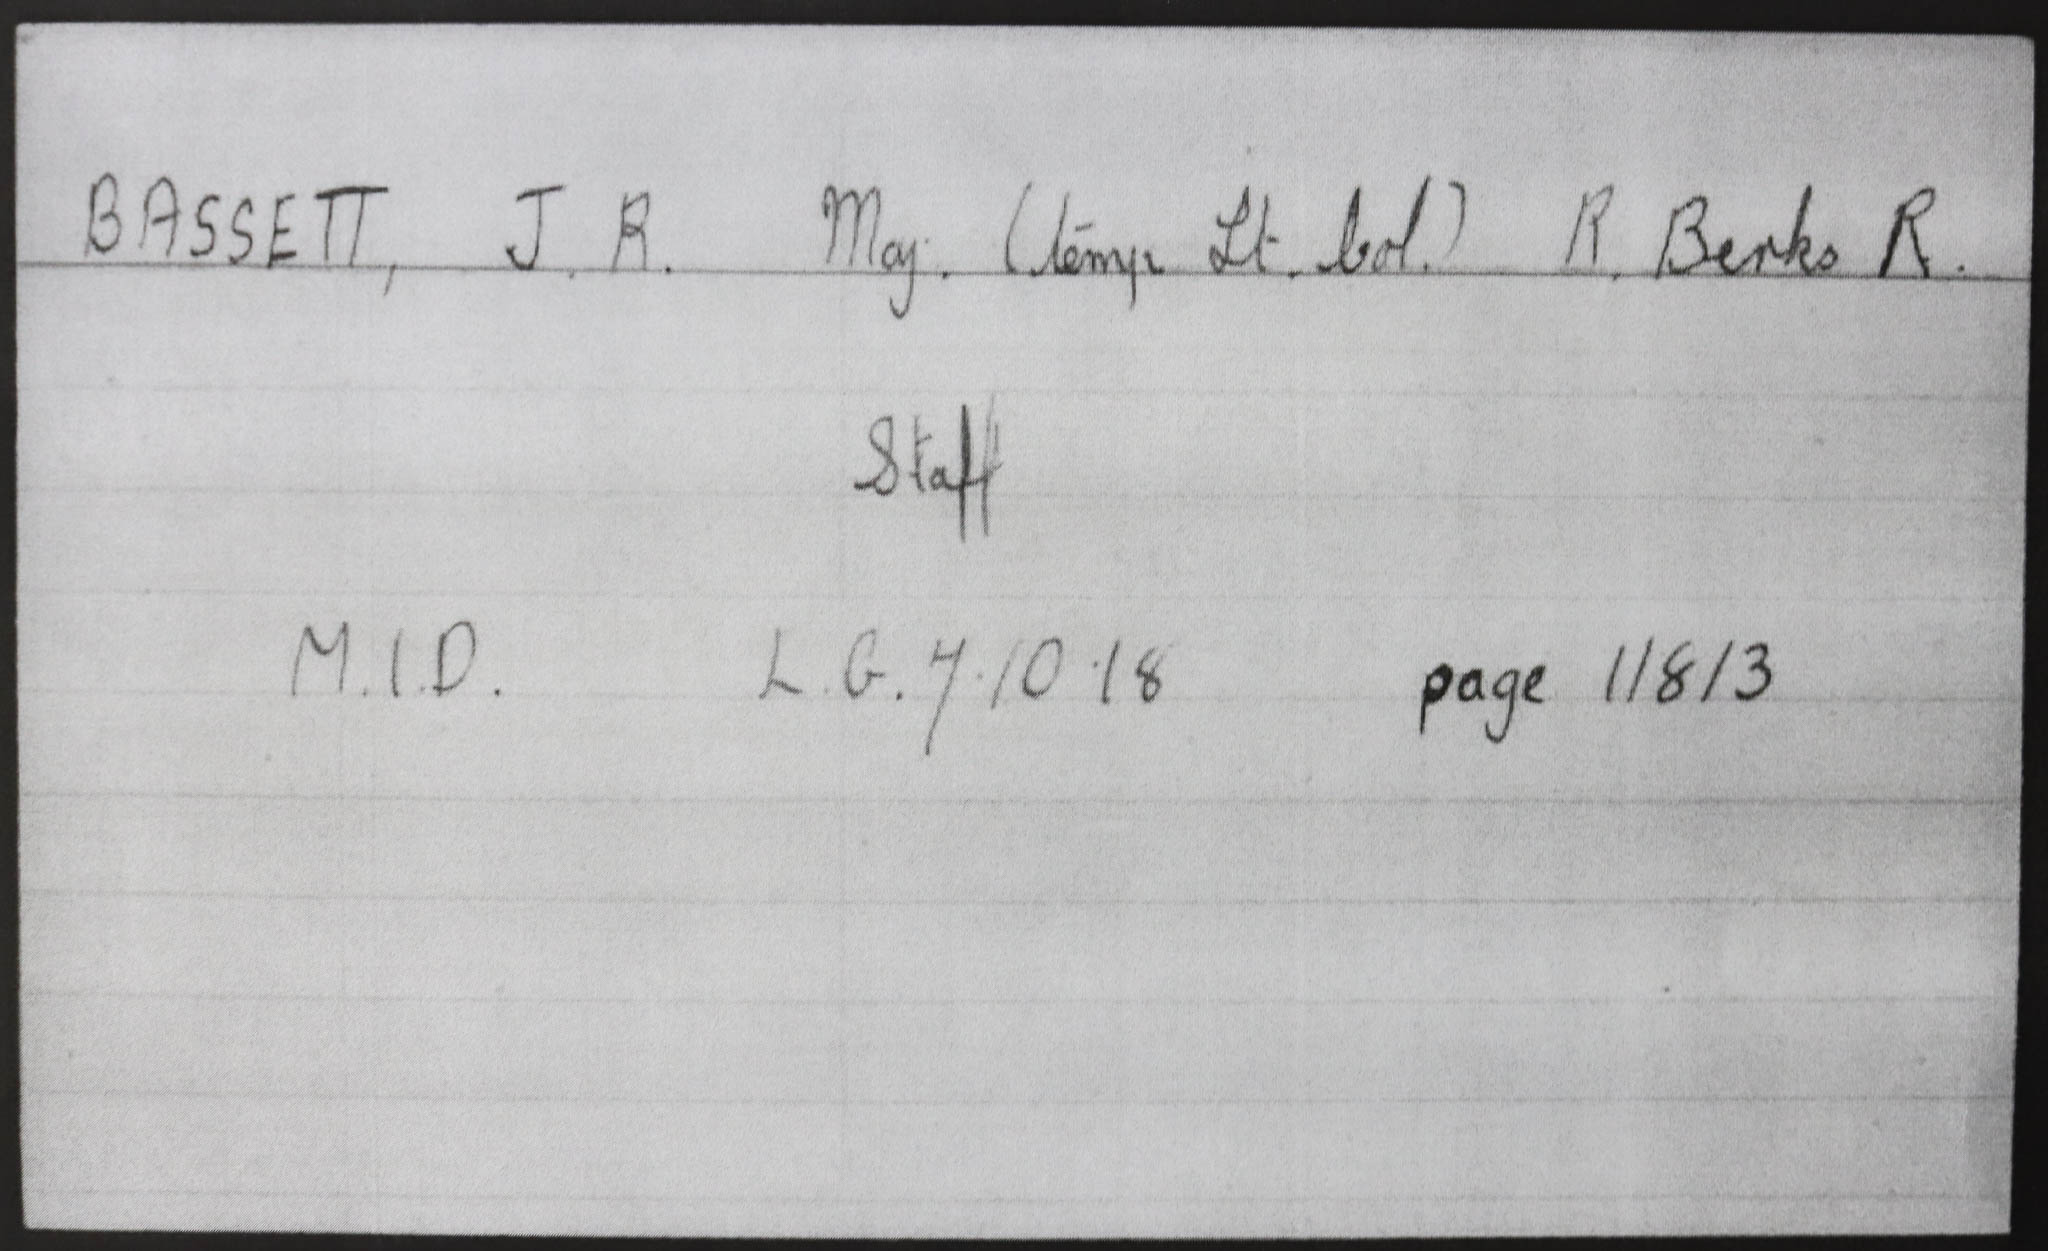 BASSETT, J. R. Maj. (temp Lt. Col.) R. Berks R.
Staff
M.I.D. L.G. 7.10.18 page 11813